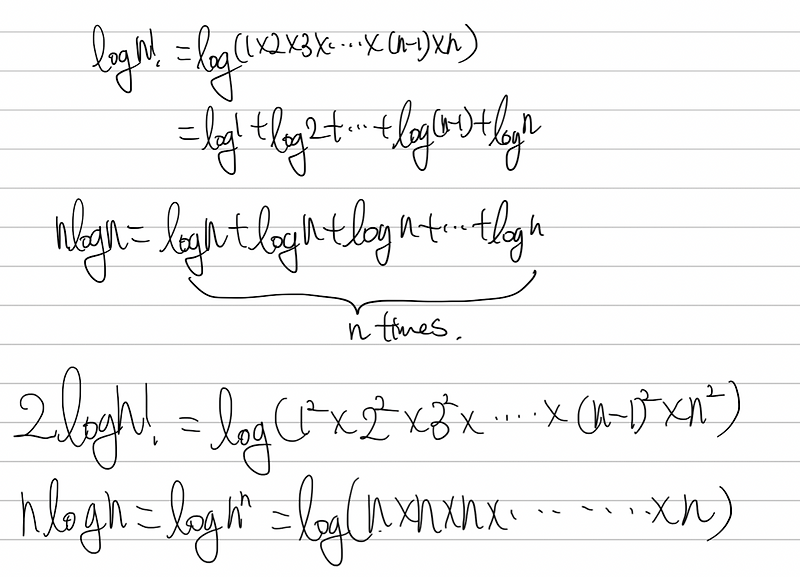 log n! = log(1×2×3×⋯×(n-1)×n)
= log1 + log2 + ⋯ + log(n-1) + log n
n log n = log n + log n + log n + ⋯ + log n
n times.
2 log n! = log(1²×2²×3²×⋯×(n-1)²×n²)
n log n = log nⁿ = log(n×n×n×⋯⋯×n)